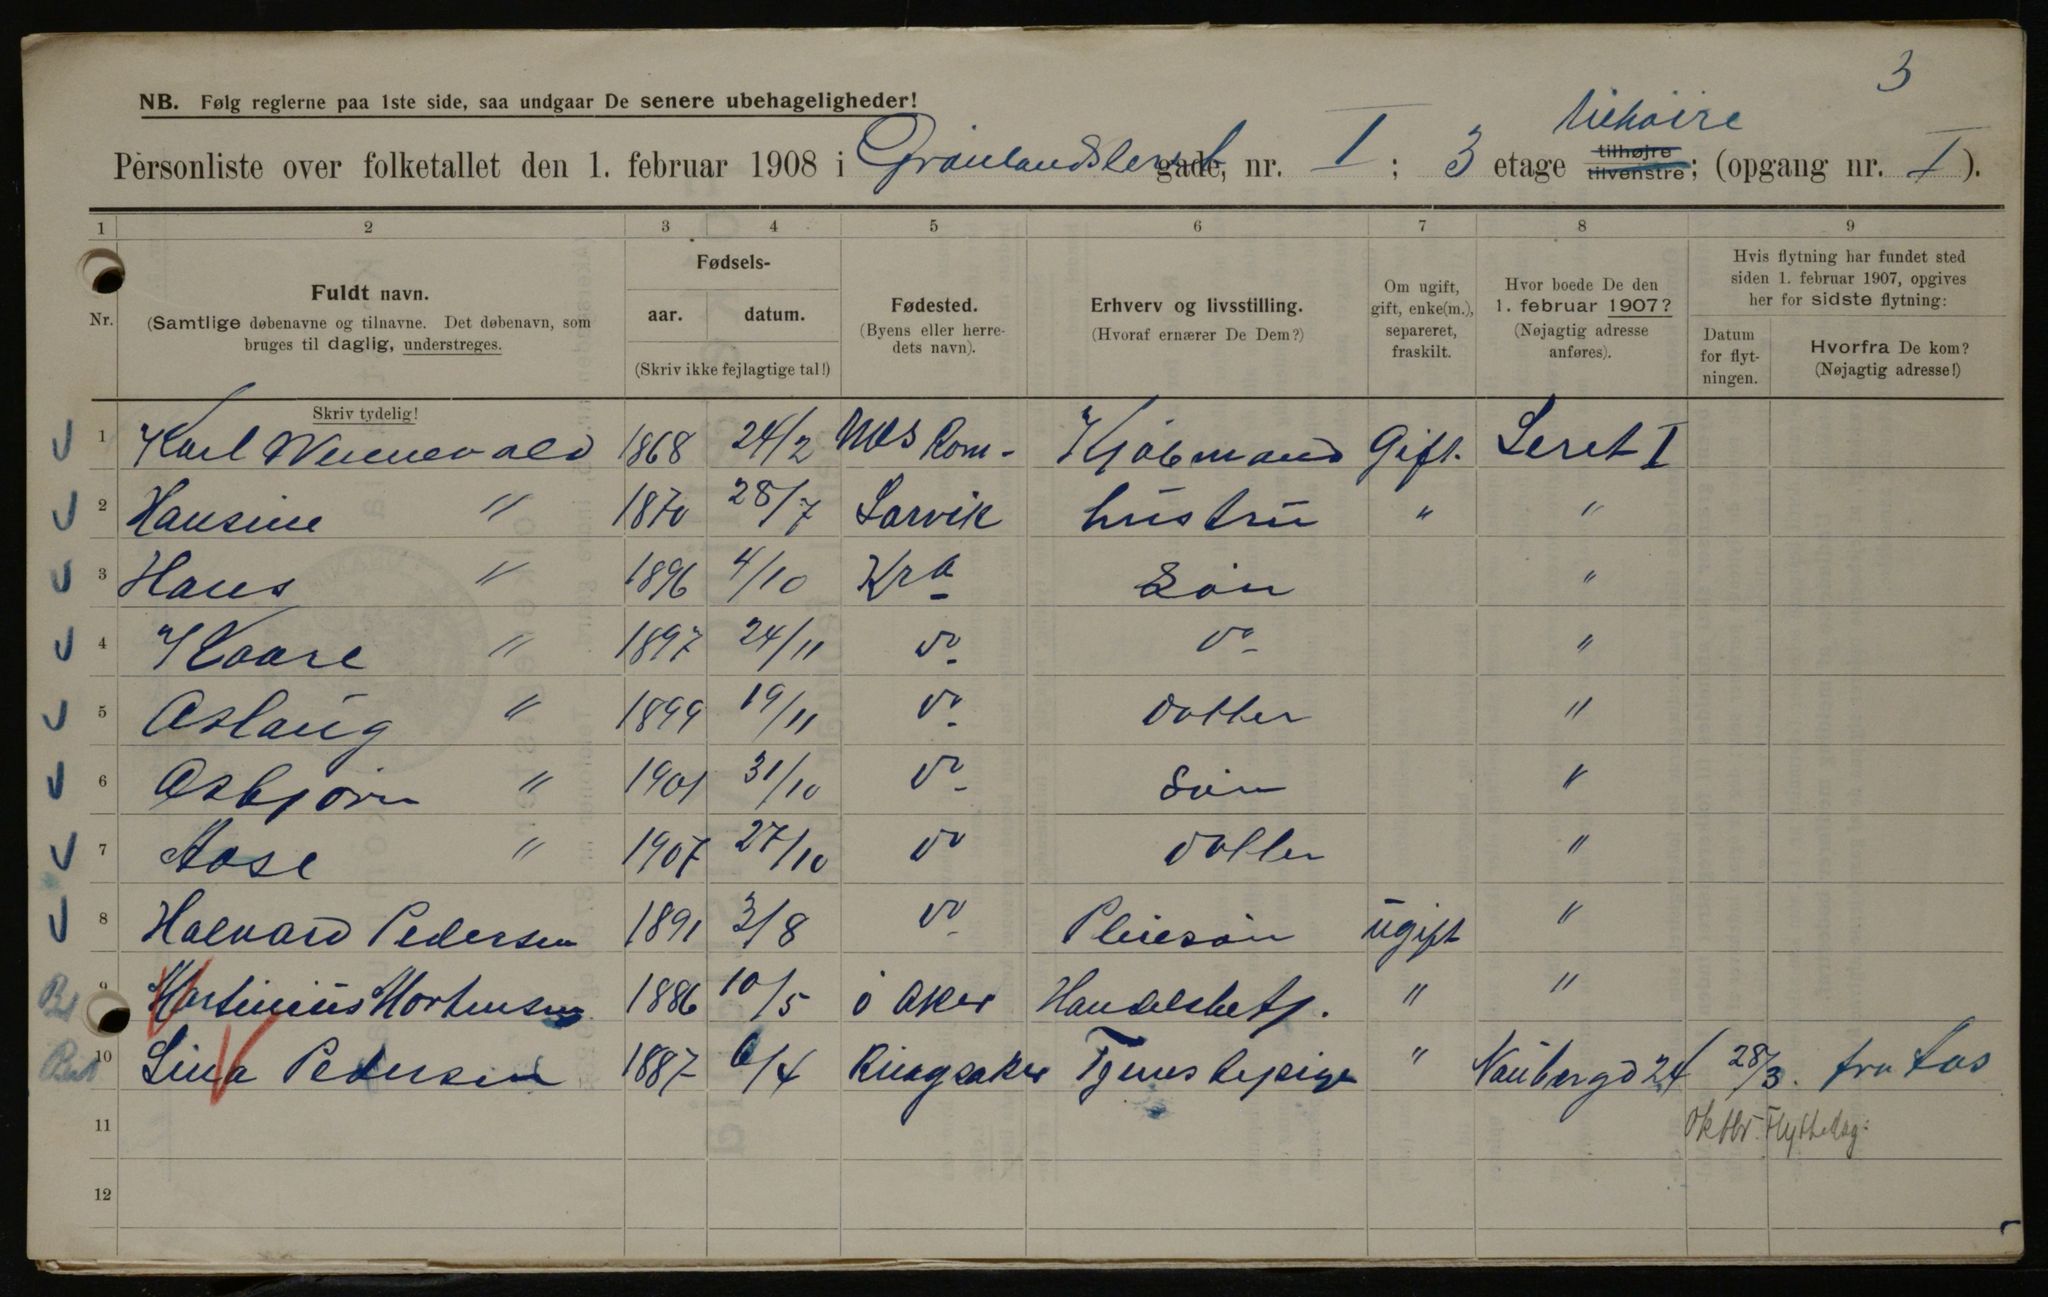 3
NB. Følg reglerne paa 1ste side, saa undgaar De senere ubehageligheder!
tilhøire
Personliste over folketallet den 1. februar 1908 i Grønlandsleret gade, nr. I ; 3 etage tilhøjre tilvenstre; (opgang nr. I ).
1 2 3 4 5 6 7 8 9
Nr. Fuldt navn. (Samtlige døbenavne og tilnavne. Det døbenavn, som bruges til daglig, understreges. Skriv tydelig!
Fødsels- aar. datum. (Skriv ikke fejlagtige tal!)
Fødested. (Byens eller herredets navn).
Erhverv og livsstilling. (Hvoraf ernærer De Dem?)
Om ugift, gift, enke(m.), separeret, fraskilt.
Hvor boede De den 1. februar 1907? (Nøjagtig adresse anføres).
Hvis flytning har fundet sted siden 1. februar 1907, opgives her for sidste flytning:
Datum for flytningen. Hvorfra De kom? (Nøjagtig adresse!)
1 Karl Wennevold 1868 24/2 Næs Rom- Kjøbmand Gift. Leret I
2 Hansine " 1870 28/7 Larvik hustru " "
3 Hans " 1896 4/10 Kra Søn "
4 Kaare " 1897 24/11 do Do "
5 Aslaug " 1899 19/11 do Datter "
6 Asbjørn " 1901 31/10 do Søn "
7 Aase " 1907 27/10 do Datter "
8 Halvard Pedersen 1891 3/8 do Pleiesøn ugift "
9 Martinius Mortensen 1886 10/5 ø Aker Handelsbetj. " "
10 Lina Pedersen 1887 6/4 Ringsaker Tjenestepige " 24 28/3. fra
11 Oktbr. Flyttedag.
12